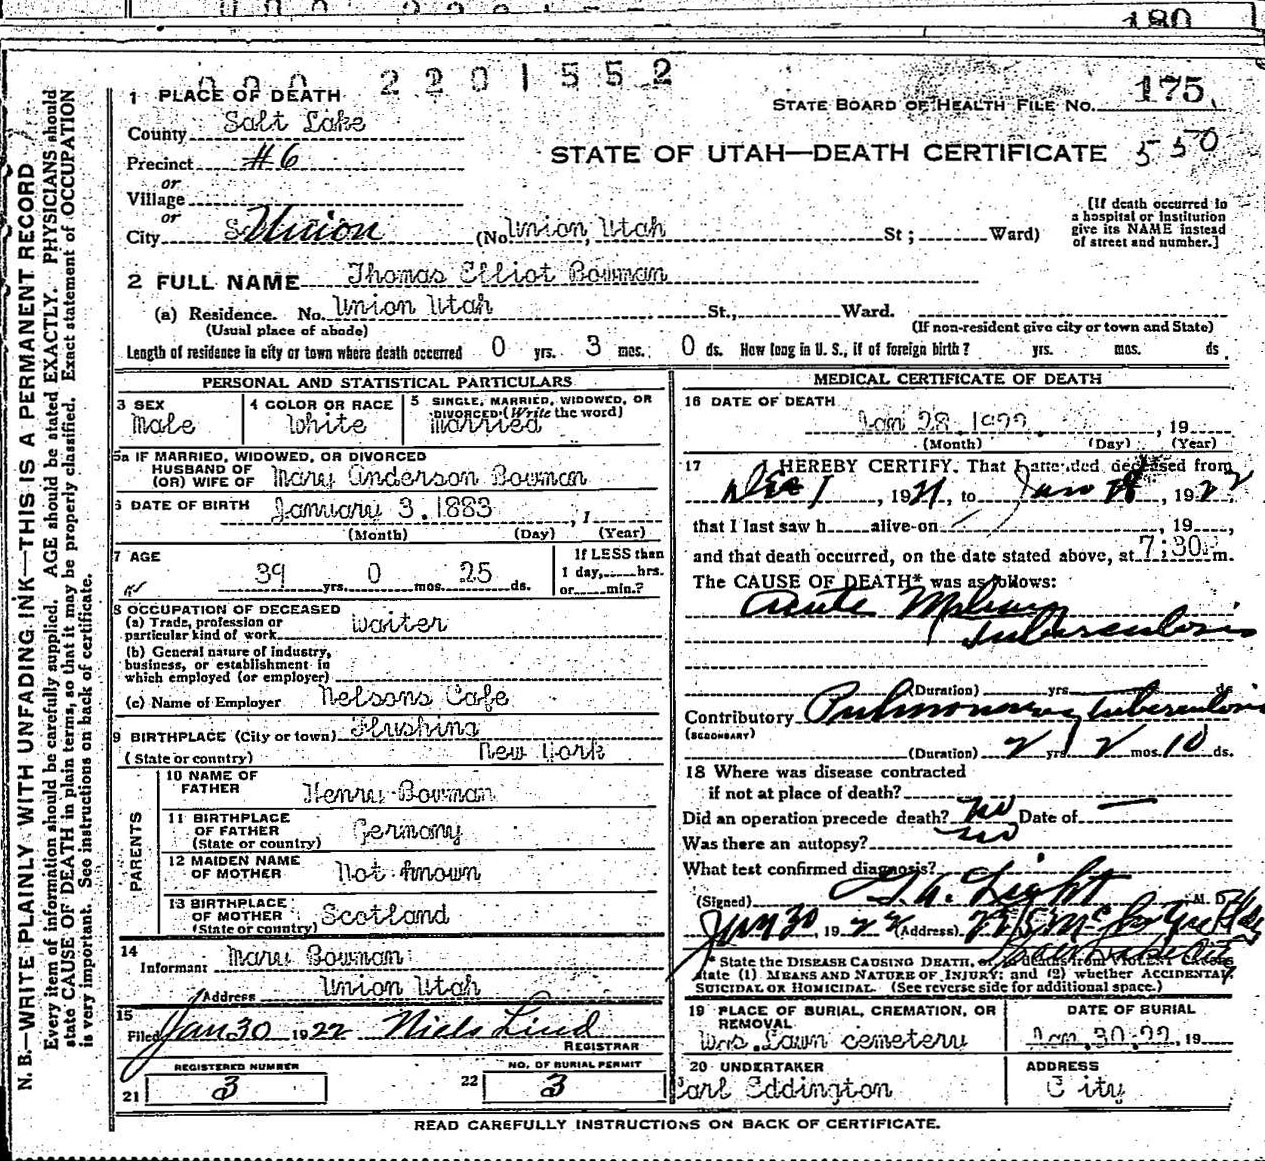 180
000 2201552
1 PLACE OF DEATH
STATE BOARD OF HEALTH FILE NO. 175
County Salt Lake
Precinct #6
STATE OF UTAH—DEATH CERTIFICATE 550
or
Village
or
City Union (No. Union, Utah St; Ward)
[If death occurred in
a hospital or institution
give its NAME instead
of street and number.]
2 FULL NAME Thomas Elliot Bowman
(a) Residence. No. Union Utah St., Ward.
(Usual place of abode) (If non-resident give city or town and State)
Length of residence in city or town where death occurred 0 yrs. 3 mos. 0 ds. How long in U. S., if of foreign birth? yrs. mos. ds
PERSONAL AND STATISTICAL PARTICULARS
3 SEX
Male
4 COLOR OR RACE
White
5 SINGLE, MARRIED, WIDOWED, OR
DIVORCED (Write the word)
Married
5a IF MARRIED, WIDOWED, OR DIVORCED
HUSBAND OF
(OR) WIFE OF Mary Anderson Bowman
6 DATE OF BIRTH January 3, 1883, 1
(Month) (Day) (Year)
7 AGE
39 yrs. 0 mos. 25 ds.
If LESS than
1 day, hrs.
or min.?
8 OCCUPATION OF DECEASED
(a) Trade, profession or
particular kind of work Waiter
(b) General nature of industry,
business, or establishment in
which employed (or employer)
(c) Name of Employer Nelsons Cafe
9 BIRTHPLACE (City or town) Flushing
(State or country) New York
PARENTS
10 NAME OF
FATHER Henry Bowman
11 BIRTHPLACE
OF FATHER
(State or country) Germany
12 MAIDEN NAME
OF MOTHER Not known
13 BIRTHPLACE
OF MOTHER
(State or country) Scotland
14
Informant Mary Bowman
Address Union Utah
15
Filed Jan 30 1922 Niels Lind
REGISTRAR
REGISTERED NUMBER
21 3
NO. OF BURIAL PERMIT
22 3
MEDICAL CERTIFICATE OF DEATH
16 DATE OF DEATH
Jan 28, 1922, 19
(Month) (Day) (Year)
17 I HEREBY CERTIFY. That I attended deceased from
Dec 1, 1921, to Jan 28, 1922
that I last saw h alive on , 19 ,
and that death occurred, on the date stated above, at 7:30 m.
The CAUSE OF DEATH* was as follows:
Acute Miliary
Tuberculosis
(Duration) yrs ds
Contributory Pulmonary Tuberculosis
(SECONDARY)
(Duration) 2 yrs 2 mos. 10 ds.
18 Where was disease contracted
if not at place of death?
Did an operation precede death? no Date of —
Was there an autopsy? no
What test confirmed diagnosis?
(Signed) M. D.
Jan 30, 1922 (Address)
* State the DISEASE CAUSING DEATH,
state (1) MEANS AND NATURE OF INJURY; and (2) whether ACCIDENTAL,
SUICIDAL OR HOMICIDAL. (See reverse side for additional space.)
19 PLACE OF BURIAL, CREMATION, OR
REMOVAL
Was. Lawn cemetery
DATE OF BURIAL
Jan. 30, 22, 19
20 UNDERTAKER
Carl Eddington
ADDRESS
City
READ CAREFULLY INSTRUCTIONS ON BACK OF CERTIFICATE.
N. B.—WRITE PLAINLY WITH UNFADING INK—THIS IS A PERMANENT RECORD
Every item of information should be carefully supplied. AGE should be stated EXACTLY. PHYSICIANS should
state CAUSE OF DEATH in plain terms, so that it may be properly classified. Exact statement of OCCUPATION
is very important. See instructions on back of certificate.